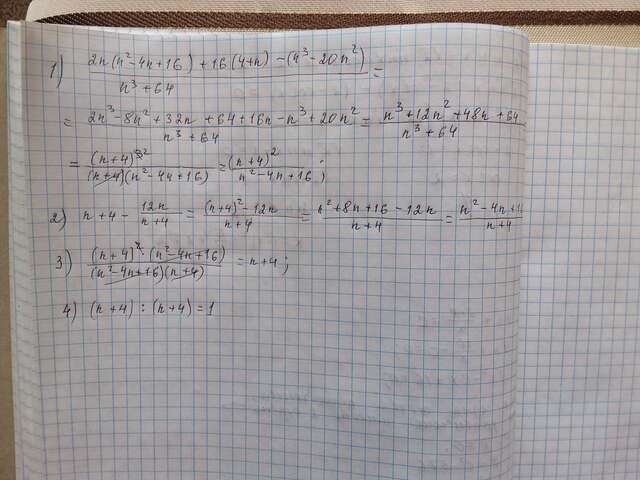 1) (2n(n²-4n+16)+16(4+n)-(n³-20n²))/(n³+64) =
= (2n³-8n²+32n+64+16n-n³+20n²)/(n³+64) = (n³+12n²+48n+64)/(n³+64)
= (n+4)²/((n+4)(n²-4n+16)) = (n+4)²/(n²-4n+16);
2) n+4- 12n/(n+4) = ((n+4)²-12n)/(n+4) = (n²+8n+16-12n)/(n+4) = (n²-4n+16)/(n+4)
3) ((n+4)²·(n²-4n+16))/((n²-4n+16)(n+4)) = n+4;
4) (n+4):(n+4)=1